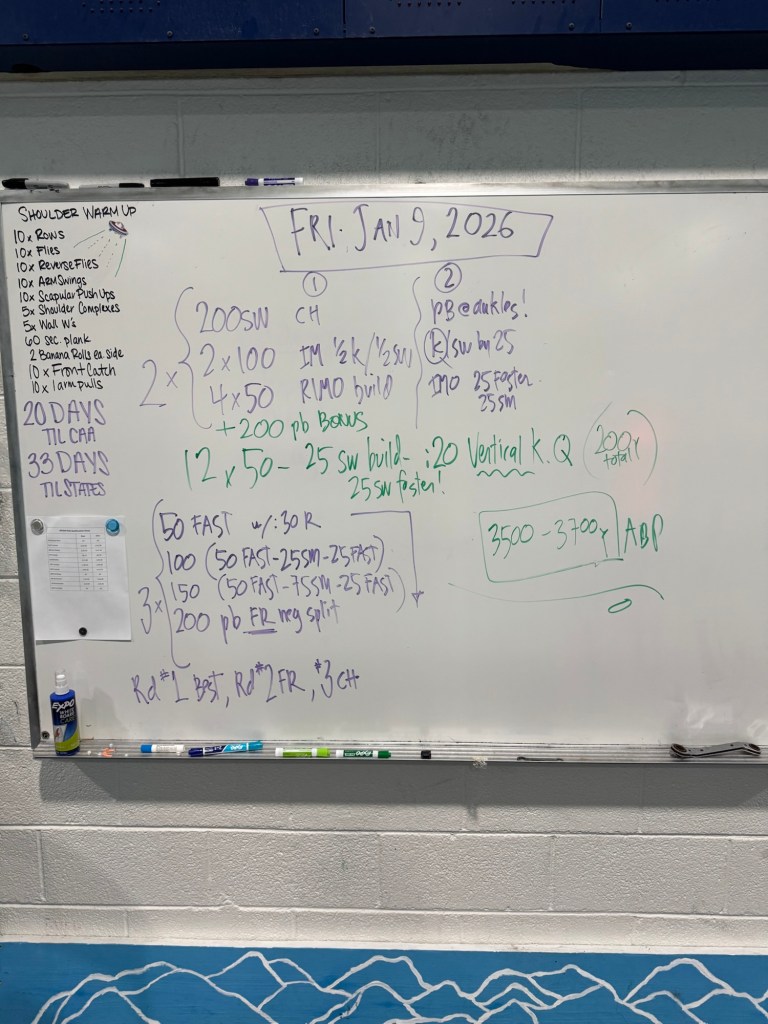 SHOULDER WARM UP
10x Rows
10x Flies
10x Reverse Flies
10x Arm Swings
10x Scapular Push Ups
5x Shoulder Complexes
5x Wall W's
60 sec. plank
2 Banana Rolls ea. side
10x Front Catch
10x 1 arm pulls
20 DAYS
TIL CAA
33 DAYS
TIL STATES
FRI. JAN 9, 2026
① ②
2x
200 SW CH pb @ ankles!
2 x 100 IM ½ k / ½ sw k/sw by 25
4 x 50 RIMO build IMO 25 Faster
25 sm
+ 200 pb BONUS
12 x 50 - 25 sw build - :20 Vertical K. Q (200Y total)
25 sw faster!
3x
50 FAST w/ :30 R
100 (50 FAST - 25SM - 25 FAST)
150 (50 FAST - 75SM - 25 FAST)
200 pb FR neg split
Rd #1 Best, Rd #2 FR, #3 CH
3500 - 3700Y ABP
EXPO
WHITE BOARD CARE